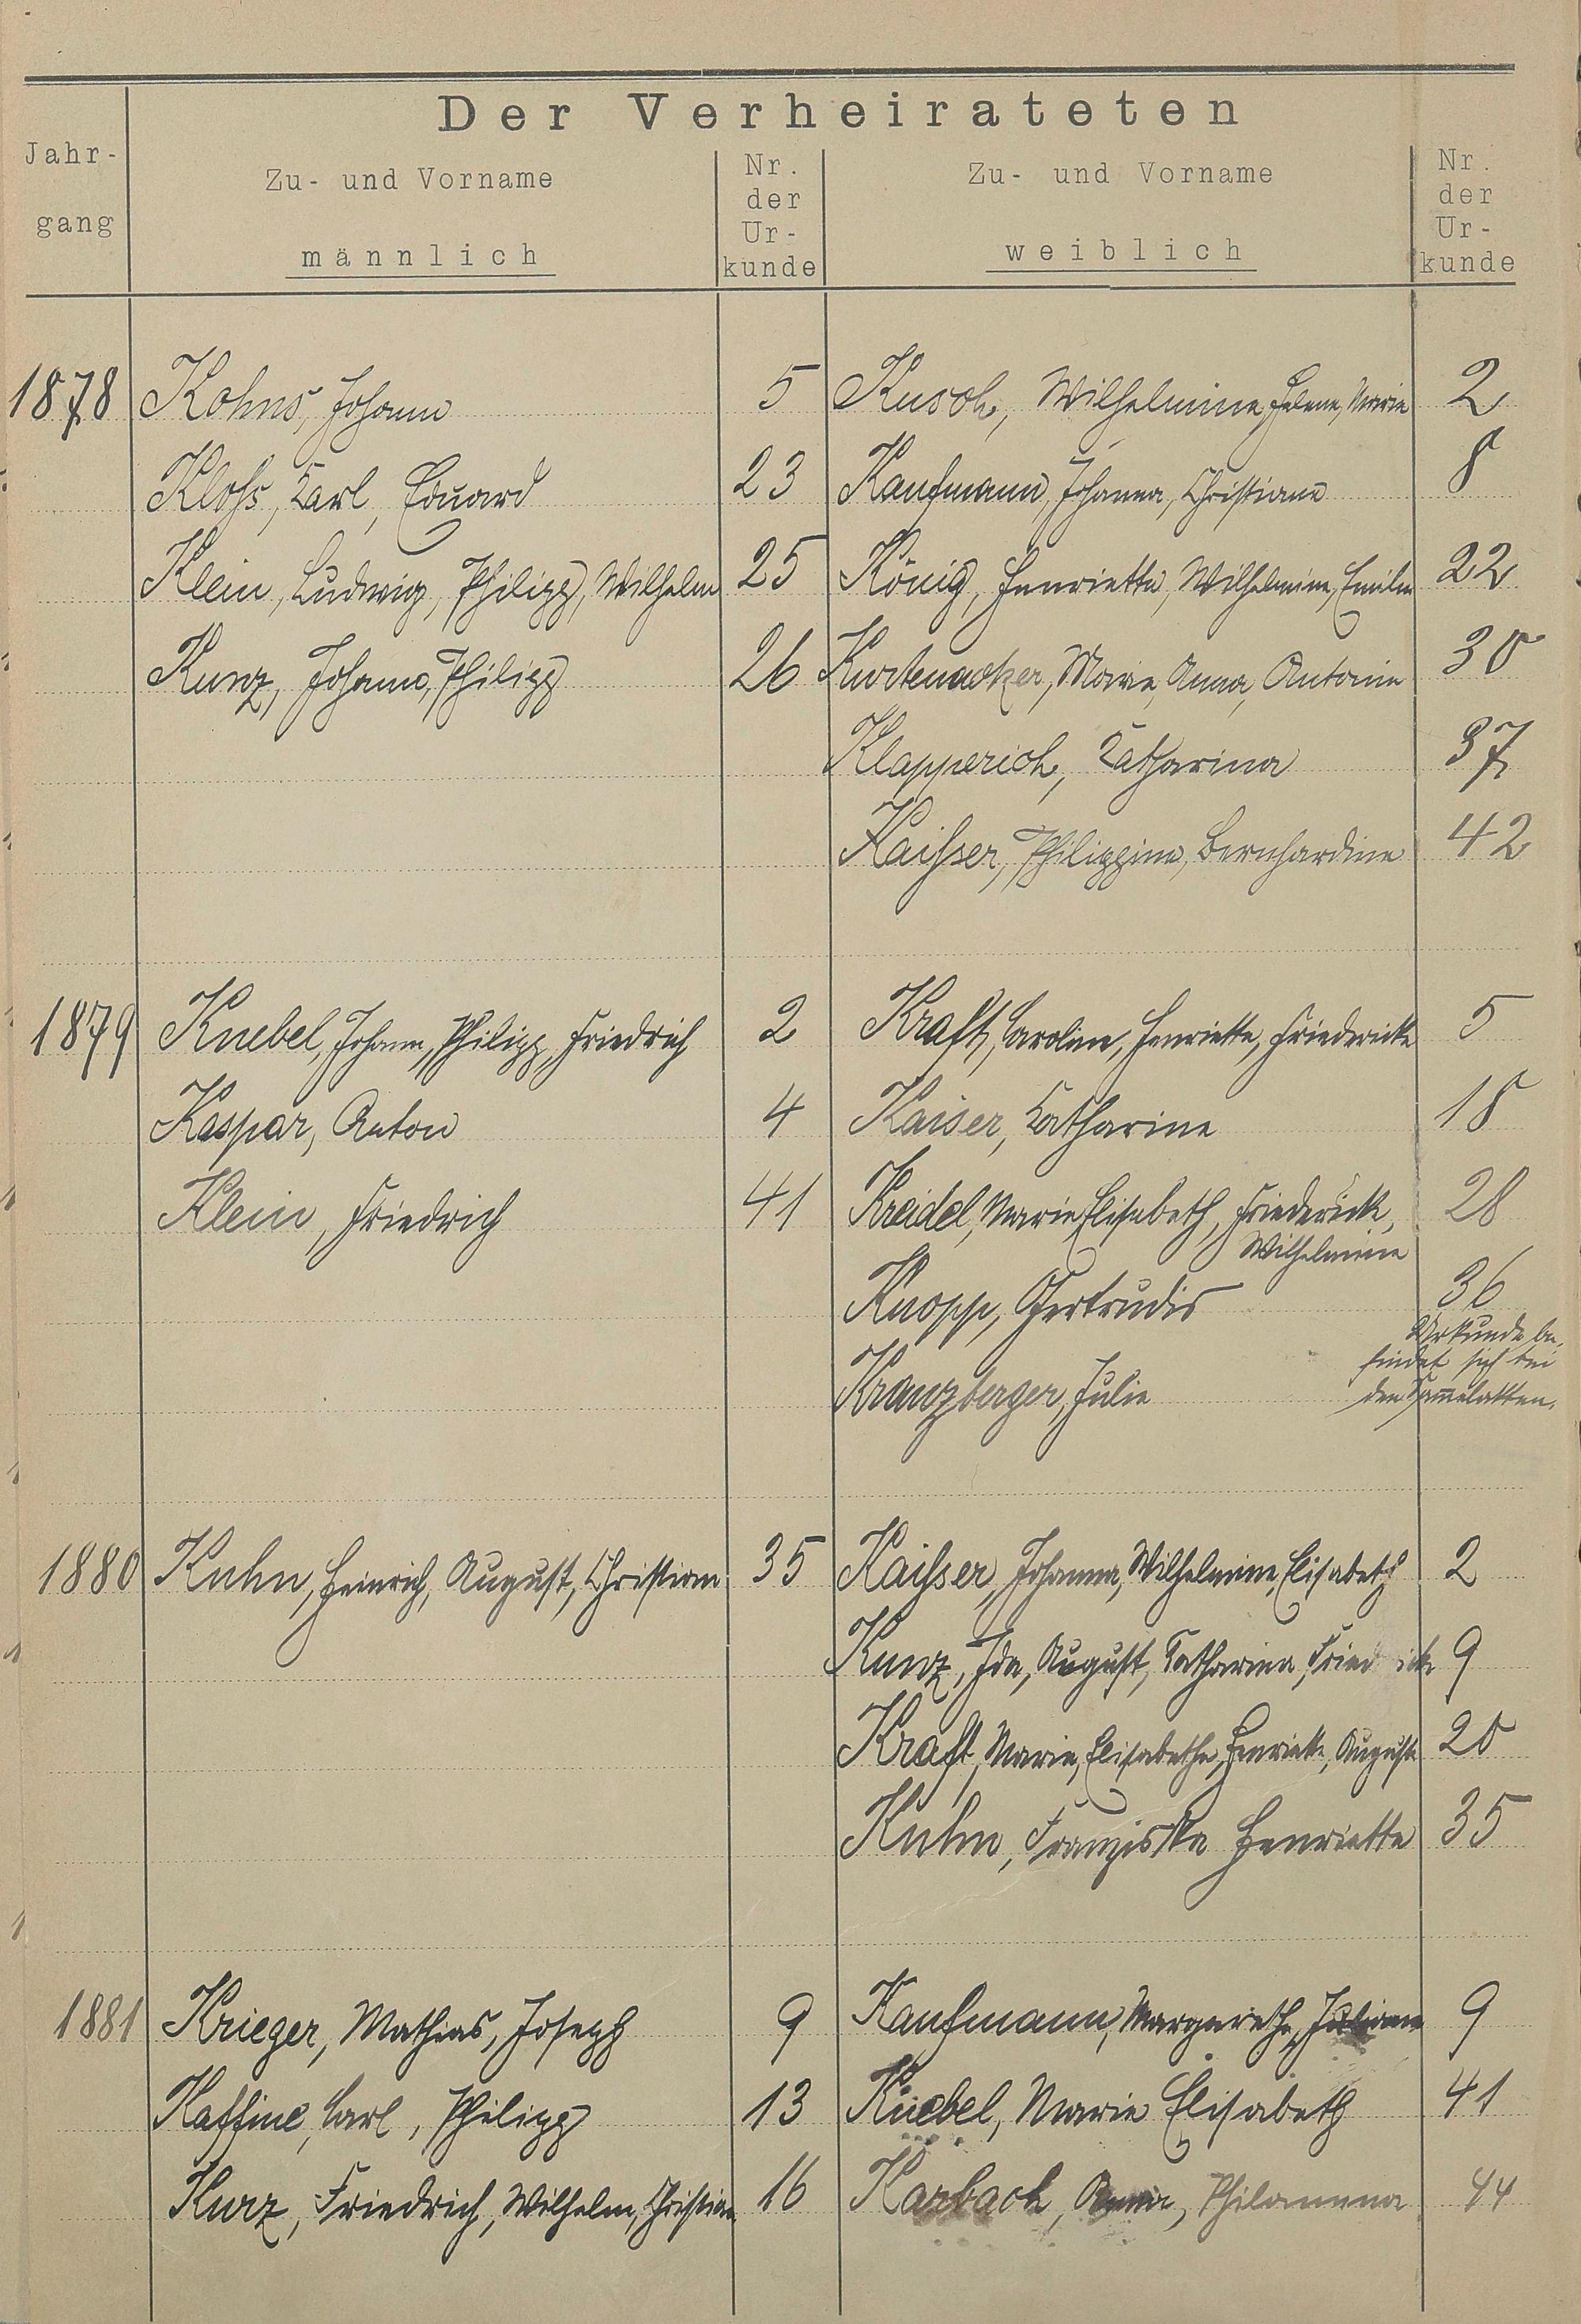 Der Verheirateten
Jahr-
gang
Zu- und Vorname
männlich
Nr.
der
Ur-
kunde
Zu- und Vorname
weiblich
Nr.
der
Ur-
kunde
1878 Kohns, Johann 5 Kusch, Wilhelmine, Helene, Marie 2
Kloß, Karl, Eduard 23 Kaufmann, Johanna, Christiane 8
Klein, Ludwig, Philipp, Wilhelm 25 König, Henriette, Wilhelmine, Emilie 22
Kunz, Johann, Philipp 26 Kurtenacker, Marie, Anna, Antonie 30
Klapperich, Katharina 37
Kaißer, Philippine, Bernhardine 42
1879 Knebel, Johann, Philipp, Friedrich 2 Kraft, Caroline, Henriette, Friedericke 5
Kaspar, Anton 4 Kaiser, Katharine 18
Klein, Friedrich 41 Kreidel, Marie Elisabeth, Friedericke, 28
Wilhelmine
Knopp, Gertrudis 36
Kranzberger, Julie
Urkunde be-
findet sich bei
den Sam̅elakten.
1880 Kuhn, Heinrich, August, Christian 35 Kaißer, Johanna, Wilhelmine, Elisabeth 2
Kunz, Ida, August, Katharina, 9
Kraft, Marie, Elisabethe, Henriette, Auguste 20
Kuhn, Franziska Henriette 35
1881 Krieger, Mathias, Joseph 9 Kaufmann, Margarethe, Juliane 9
Kaffine, Carl, Philipp 13 Knebel, Marie Elisabeth 41
Kurz, Friedrich, Wilhelm, Christian 16 Karbach, Anna, Philomena 44